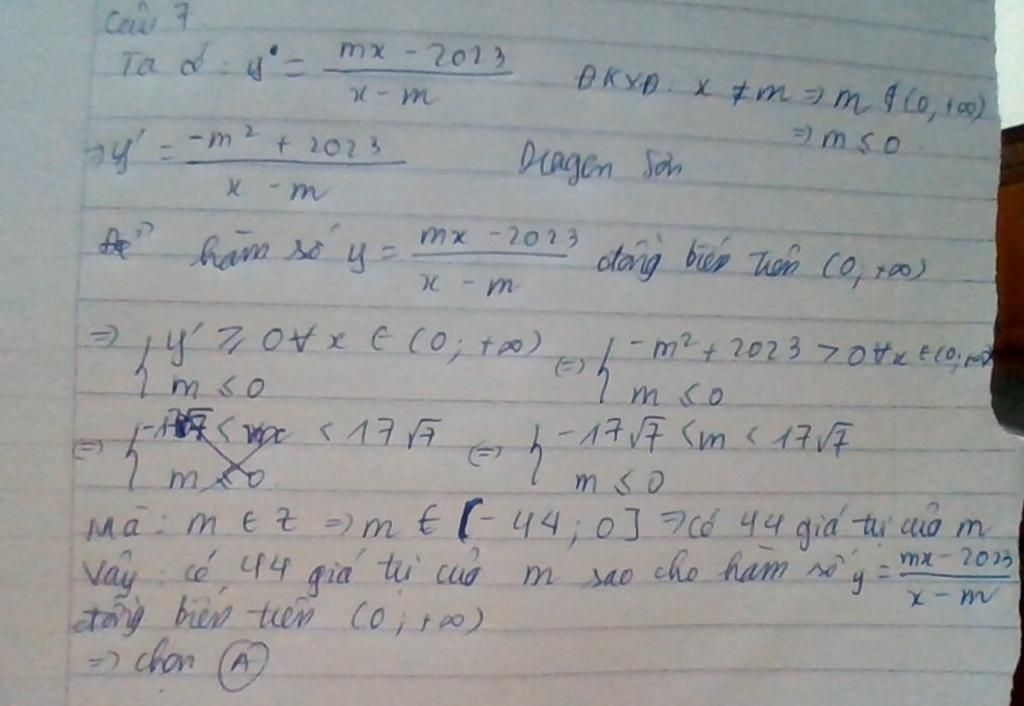 Câu 7
Ta có: y' = \frac{mx - 2023}{x - m} ĐKXĐ: x ≠ m => m ∉ (0, +∞)
=> m ≤ 0
=> y' = \frac{-m² + 2023}{x - m} Dragen Sơn
hàm số y = \frac{mx - 2023}{x - m} đồng biến trên (0, +∞)
=> { y' ≥ 0 ∀ x ∈ (0; +∞) ; m ≤ 0 <=> { -m² + 2023 > 0 ∀x ∈ (0; +∞) ; m ≤ 0
<=> { -17√7 < x < 17√7 ; m ≤ 0 <=> { -17√7 < m < 17√7 ; m ≤ 0
Mà: m ∈ Z => m ∈ [-44; 0] => có 44 giá trị của m
Vậy: có 44 giá trị của m sao cho hàm số y = \frac{mx - 2023}{x - m}
đồng biến trên (0; +∞)
=> chọn A